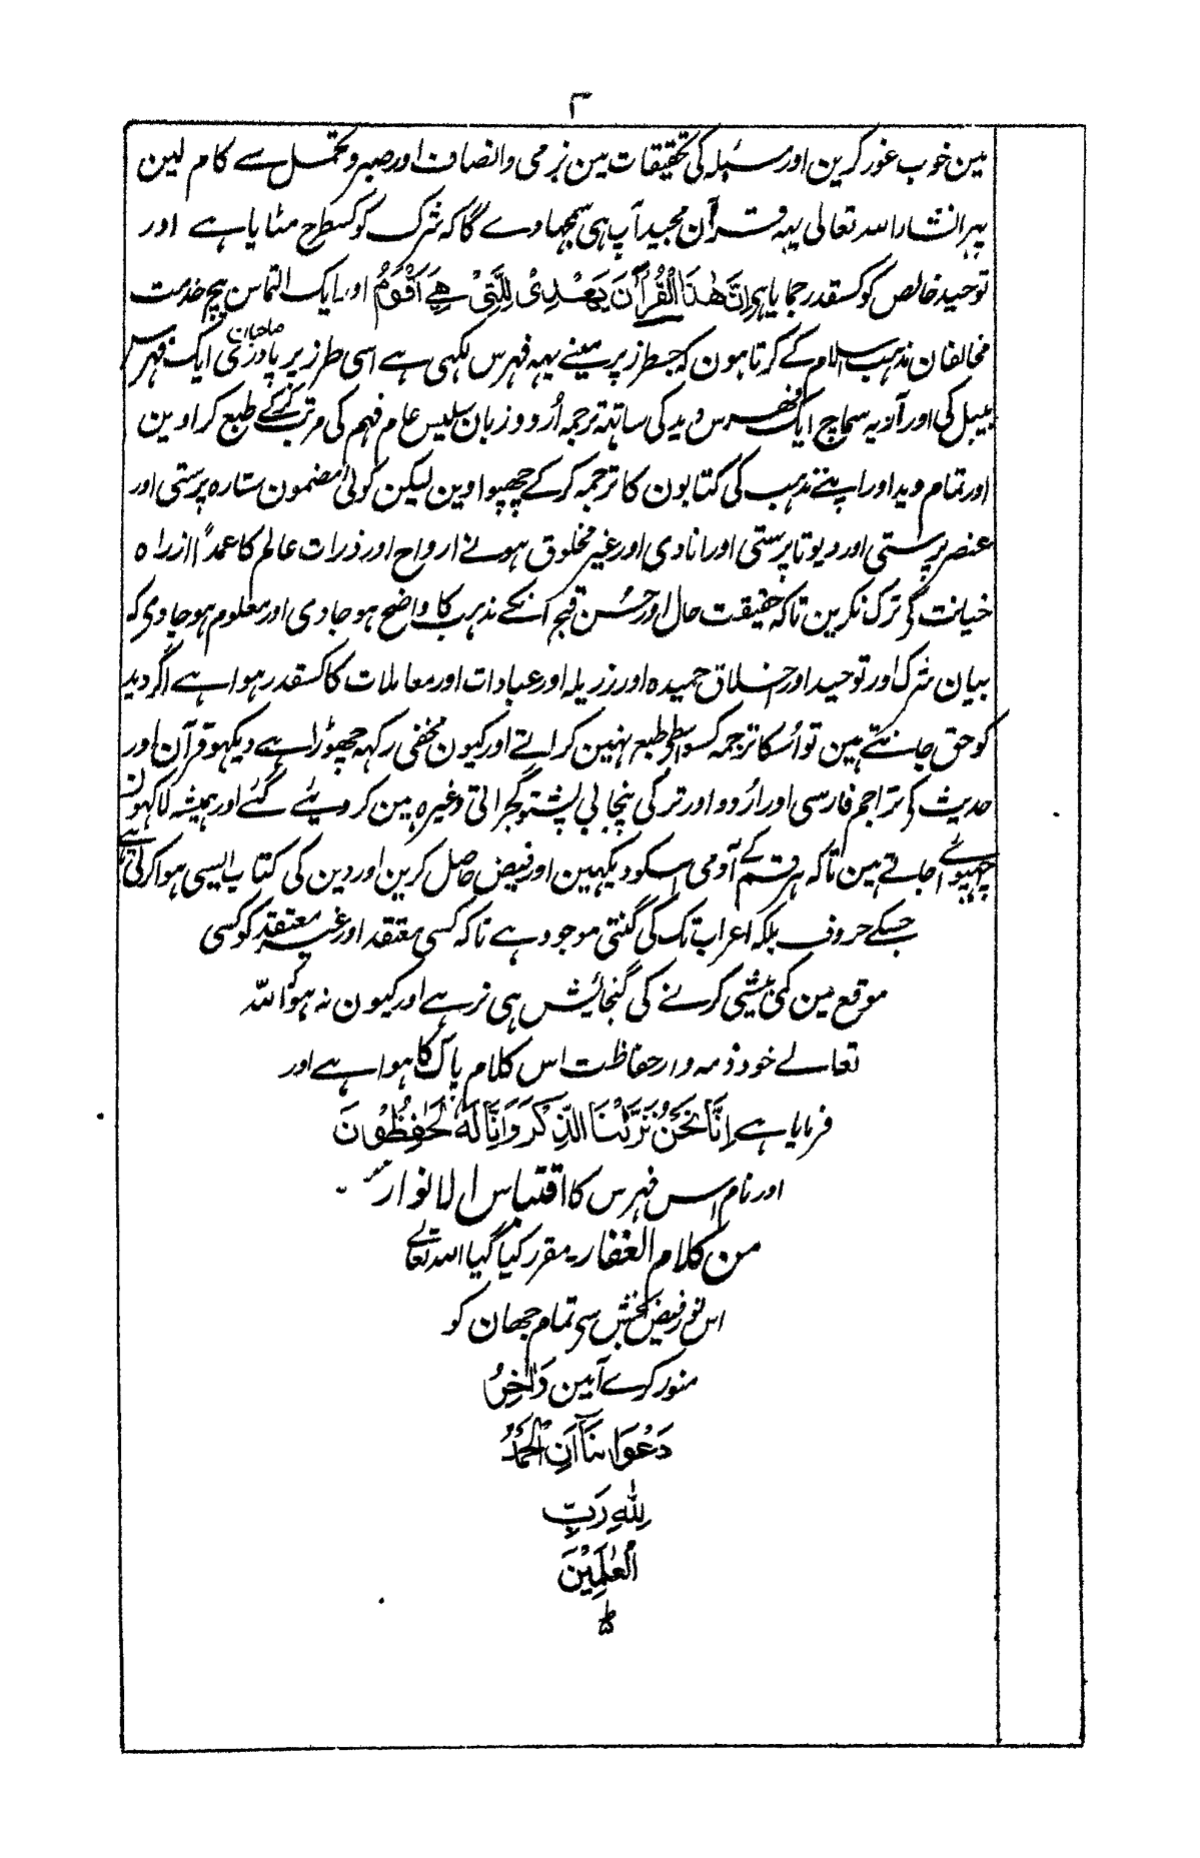 ۲
مین خوب غور کرین اور مسئلہ کی تحقیقات مین نرمی و انصاف اور صبر و تحمل سے کام لین
پہر انشاء اللہ تعالی یہہ قرآن مجید آپ ہی سمجہاوے گا کہ شرک کو کسطرح مٹایا ہے اور
توحید خالص کو کسقدر جمایا ہی اِنَّ هٰذَا الْقُرْآنَ يَهْدِىْ لِلَّتِىْ هِىَ اَقْوَمُ اور ایک التماس بیچ خدمت
مخالفان مذہب اسلام کے کرتا ہون کہ جسطرز پر مینے یہہ فہرس لکہی ہے اسی طرز پر پادری صاحبان ایک فہرس
بیبل کی اور آریہ سماج ایک فہرس وید کی ساتہہ ترجمہ اُردو زبان سلیس عام فہم کی مرتب کرکے طبع کراوین
اور تمام وید اور اپنے مذہب کی کتابون کا ترجمہ کرکے چہپواوین لیکن کوئی مضمون ستارہ پرستی اور
عنصر پرستی اور دیوتا پرستی اور انادی اور غیر مخلوق ہونے ارواح اور ذرات عالم کا عمدًا از راہ
خیانت کی ترک نکرین تاکہ حقیقت حال اور حُسن قبح انکے مذہب کا واضح ہو جاوی اور معلوم ہو جاوی کہ
بیان شرک اور توحید اور اخلاق حمیدہ اور رذیلہ اور عبادات اور معاملات کا کسقدر ہوا ہے اگر وید
کو حق جانتے ہین تو اُسکا ترجمہ کسواسطے طبع نہین کراتے اور کیون مخفی رکہہ چھوڑا ہے دیکہو قرآن اور
حدیث کی تراجم فارسی اور اُردو اور ترکی پنجابی پشتو گجراتی وغیرہ مین کر دیئے گئے اور ہمیشہ لاکہون
چہپوائے جاتے ہین تاکہ ہر قسم کے آدمی اسکو دیکہین اور فیض حاصل کرین اور دین کی کتاب ایسی ہوا کرتی ہے
جسکے حروف بلکہ اعراب تک کی گنتی موجود ہے تاکہ کسی معتقد اور غیر معتقد کو کسی
موقع مین کمی بیشی کرنے کی گنجائیش ہی نرہے اور کیون نہ ہو اللہ
تعالے خود ذمہ وار حفاظت اس کلام پاک کا ہوا ہے اور
فرمایا ہے اِنَّا نَحْنُ نَزَّلْنَا الذِّكْرَ وَاِنَّا لَهٗ لَحٰفِظُوْنَ
اور نام اس فہرس کا اقتباس الانوار
من کلام الغفار۔ مقرر کیا گیا اللہ تعالے
اس نور فیض بخش سی تمام جہان کو
منور کرے آمین وَاٰخِرُ
دَعْوَانَا اَنِ الْحَمْدُ
لِلّٰهِ رَبِّ
الْعٰلَمِيْنَ